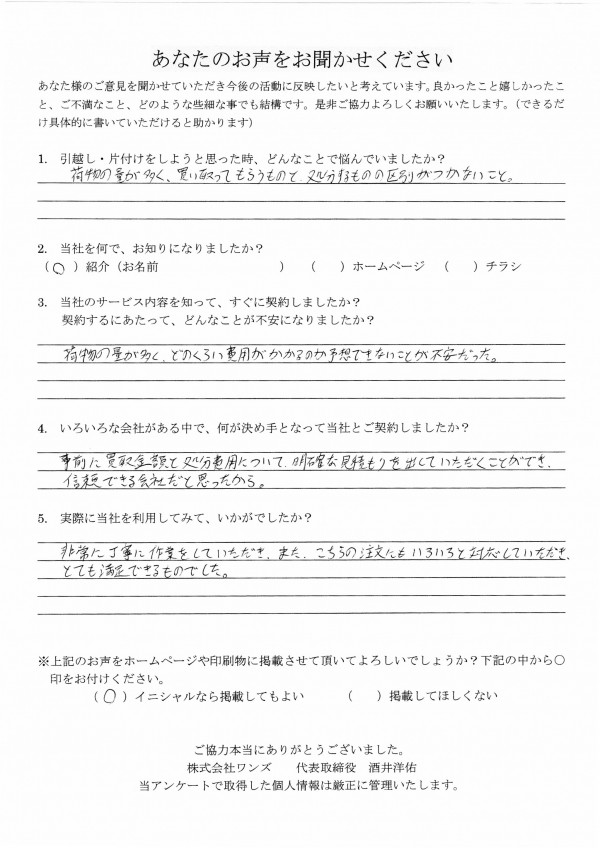 あなたのお声をお聞かせください
あなた様のご意見を聞かせていただき今後の活動に反映したいと考えています。良かったこと嬉しかったこ
と、ご不満なこと、どのような些細な事でも結構です。是非ご協力よろしくお願いいたします。（できるだ
け具体的に書いていただけると助かります）
1. 引越し・片付けをしようと思った時、どんなことで悩んでいましたか？
荷物の量が多く、買い取ってもらうものと、処分するものの区別がつかないこと。
2. 当社を何で、お知りになりましたか？
（ ○ ）紹介（お名前 ） （ ）ホームページ （ ）チラシ
3. 当社のサービス内容を知って、すぐに契約しましたか？
契約するにあたって、どんなことが不安になりましたか？
荷物の量が多く、どのくらい費用がかかるのか予想できないことが不安だった。
4. いろいろな会社がある中で、何が決め手となって当社とご契約しましたか？
事前に買取金額と処分費用について、明確な見積もりを出していただくことができ、
信頼できる会社だと思ったから。
5. 実際に当社を利用してみて、いかがでしたか？
非常に丁寧に作業をしていただき、また、こちらの注文にもいろいろと対応していただき、
とても満足できるものでした。
※上記のお声をホームページや印刷物に掲載させて頂いてよろしいでしょうか？下記の中から〇
印をお付けください。
（ ○ ）イニシャルなら掲載してもよい （ ）掲載してほしくない
ご協力本当にありがとうございました。
株式会社ワンズ 代表取締役 酒井洋佑
当アンケートで取得した個人情報は厳正に管理いたします。